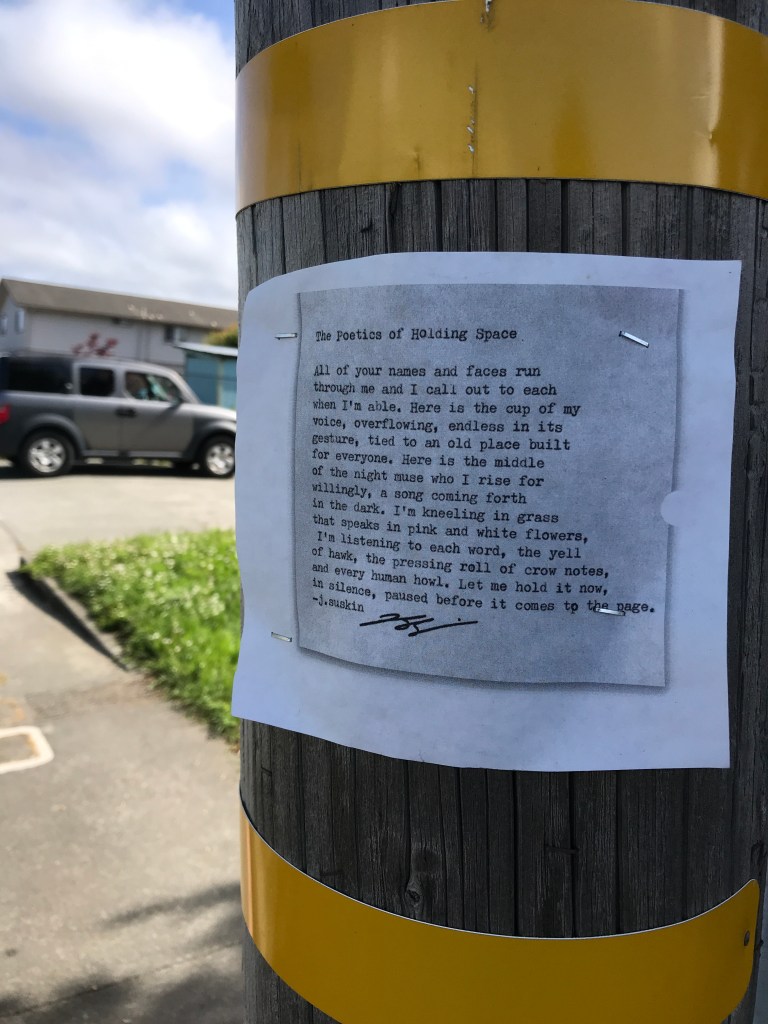 The Poetics of Holding Space
All of your names and faces run
through me and I call out to each
when I'm able. Here is the cup of my
voice, overflowing, endless in its
gesture, tied to an old place built
for everyone. Here is the middle
of the night muse who I rise for
willingly, a song coming forth
in the dark. I'm kneeling in grass
that speaks in pink and white flowers,
I'm listening to each word, the yell
of hawk, the pressing roll of crow notes,
and every human howl. Let me hold it now,
in silence, paused before it comes to the page.
-j.suskin